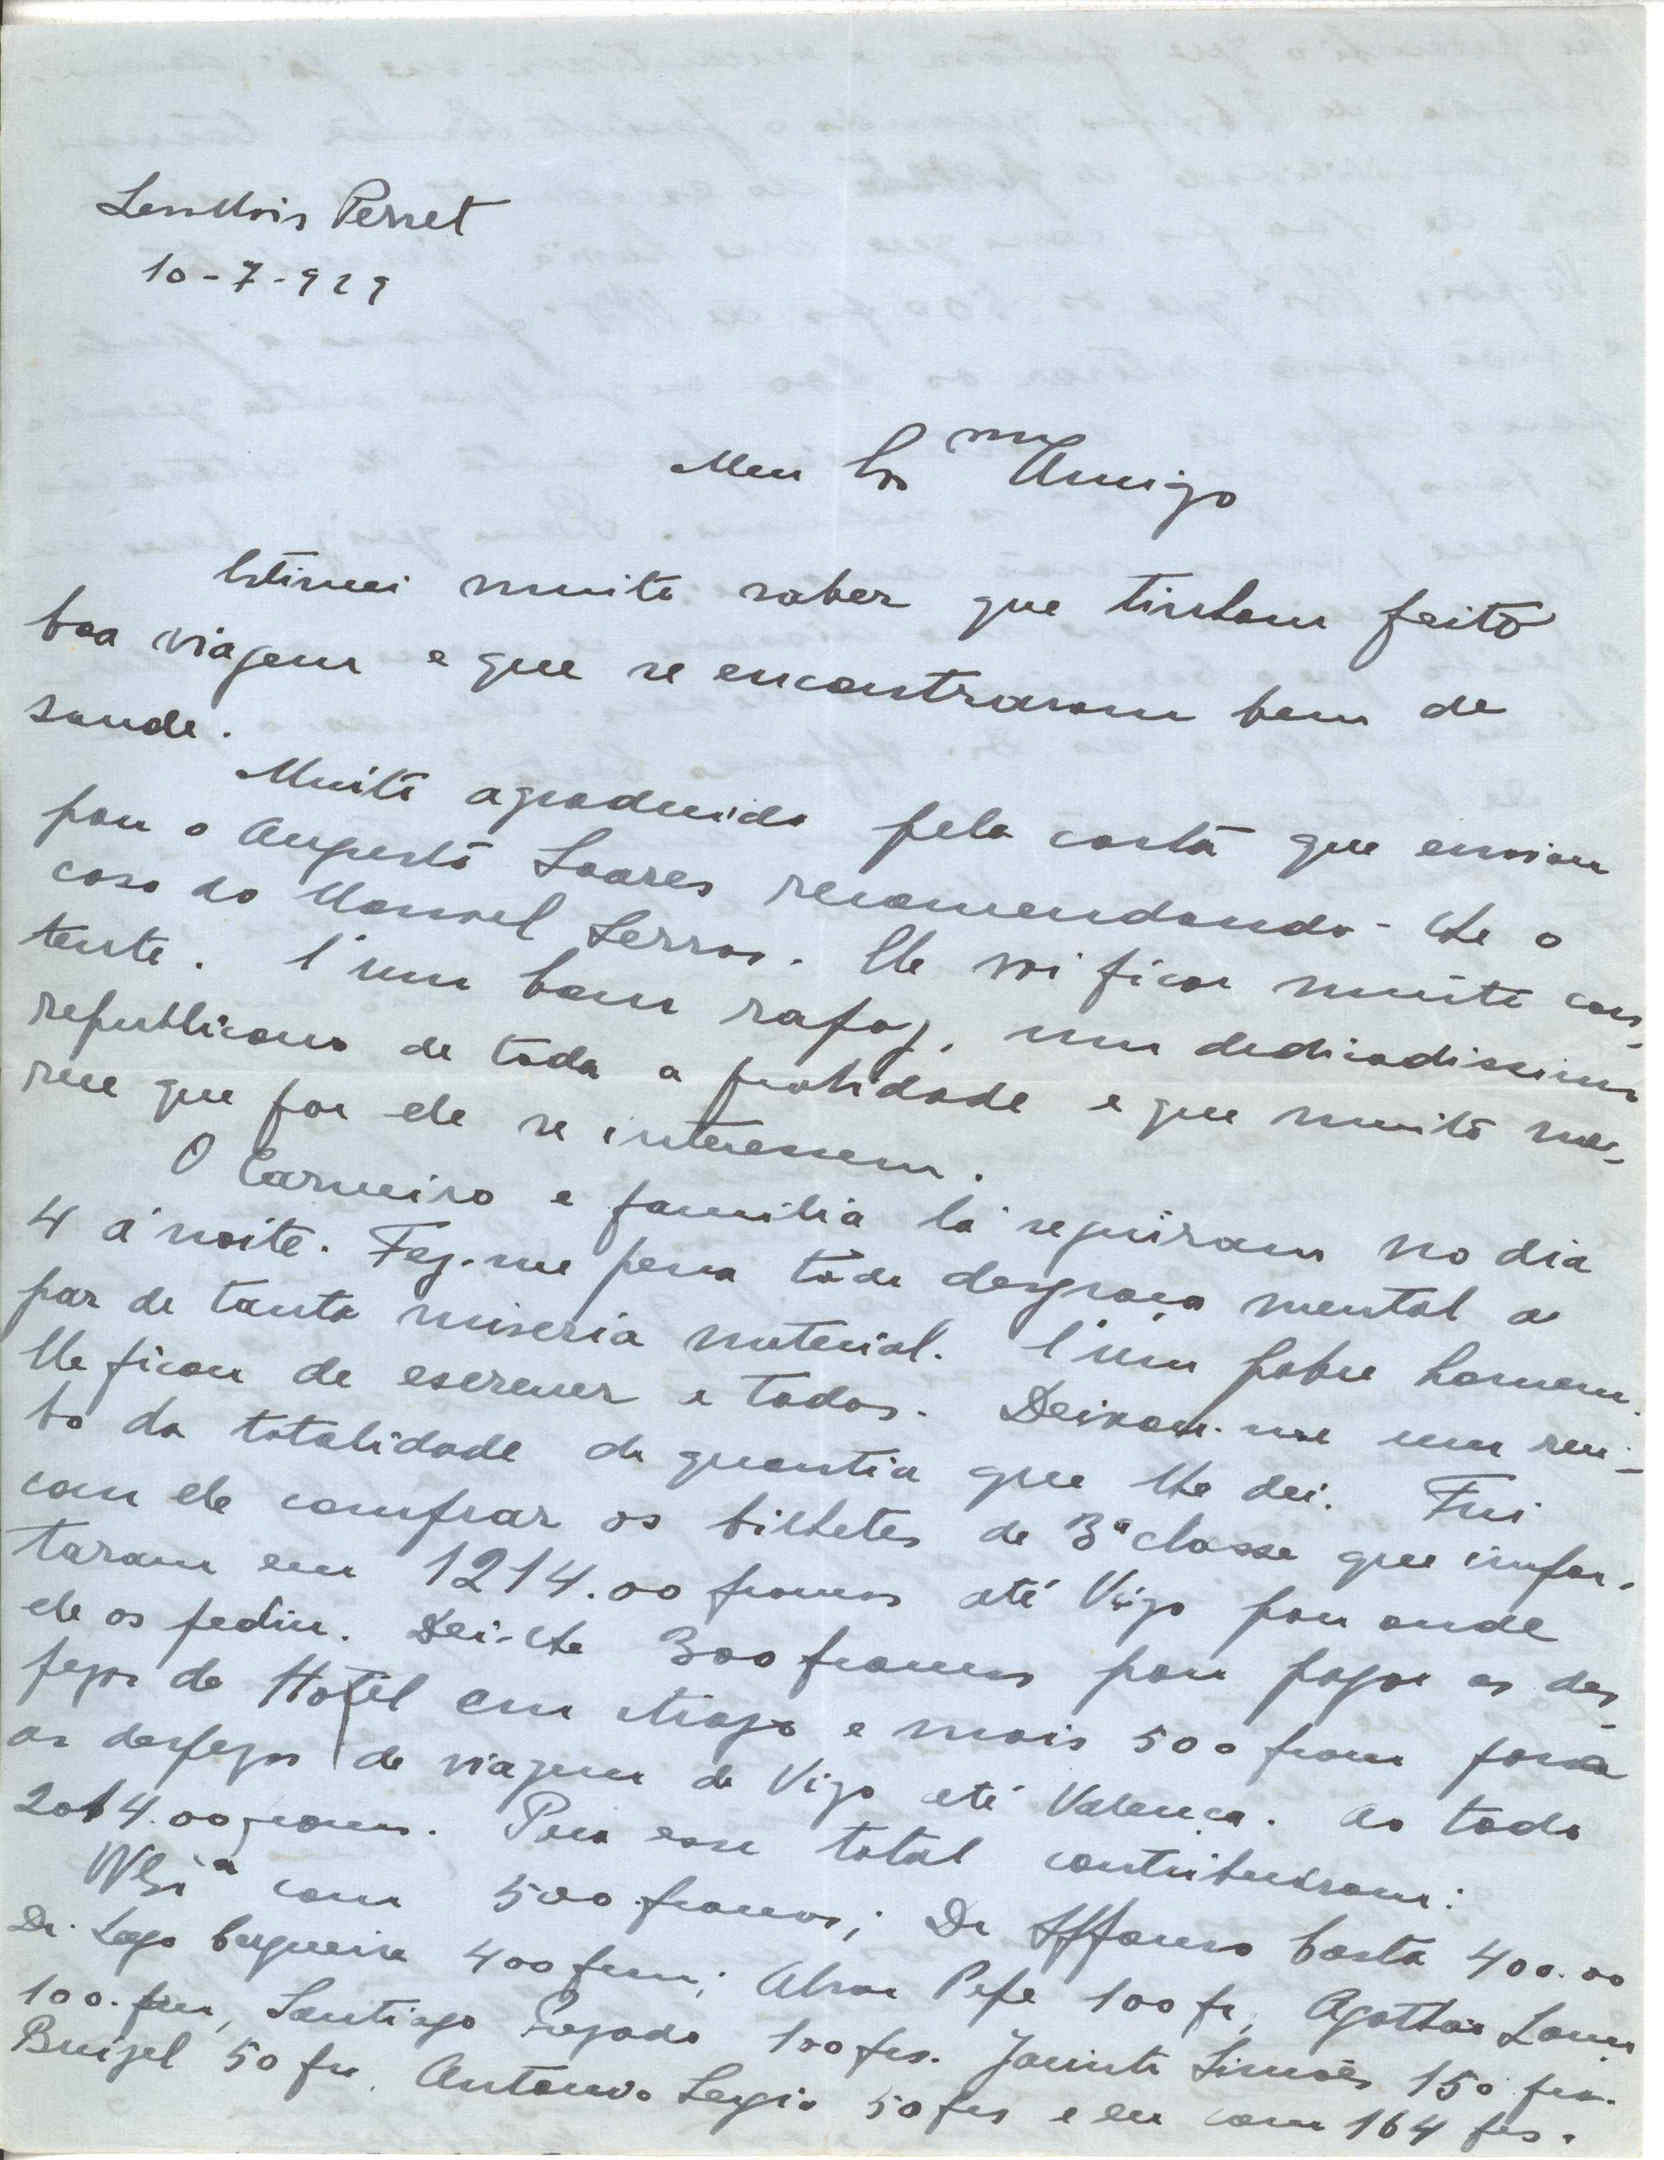 Levallois Perret
10-7-929
Meu Exmo Amigo
Estimei muito saber que tinham feito
boa viagem e que se encontraram bem de
saude.
Muito agradecido pela carta que enviou
para o Augusto Soares recomendando-lhe o
caso do Manoel Serras. Ele vai ficar muito con-
tente. É um bom rapaz, um dedicadissimo
republicano de toda a probidade e que muito me-
rece que por ele se interessem.
O Carneiro e familia lá seguiram no dia
4 á noite. Fez-me pena toda desgraça mental a
par de tanta miseria material. É um pobre homem.
Ele ficou de escrever a todos. Deixou-me um reci-
bo da totalidade da quantia que lhe dei. Fui
com ele comprar os bilhetes de 3ª classe que impor-
taram em 1214.00 francos até Vigo para onde
ele os pediu. Dei-lhe 300 francos para pagar as des-
pezas de Hotel em e mais 500 francos para
as despezas de viagem de Vigo até Valença. Ao todo
2014.00 francos. Para esse total contribuiram:
V. Exª com 500 francos; Dr Affonso Costa 400.00
Dr. Lago Cerqueira 400 francos; Alvaro Pope 100 fr, Agatão Lança
100. frcs, Santiago Prezado 100 frs. Jacinto Simões 150 frcs.
Buizel 50 frs. Antonio Sergio 50 frs e eu com 164 frs.